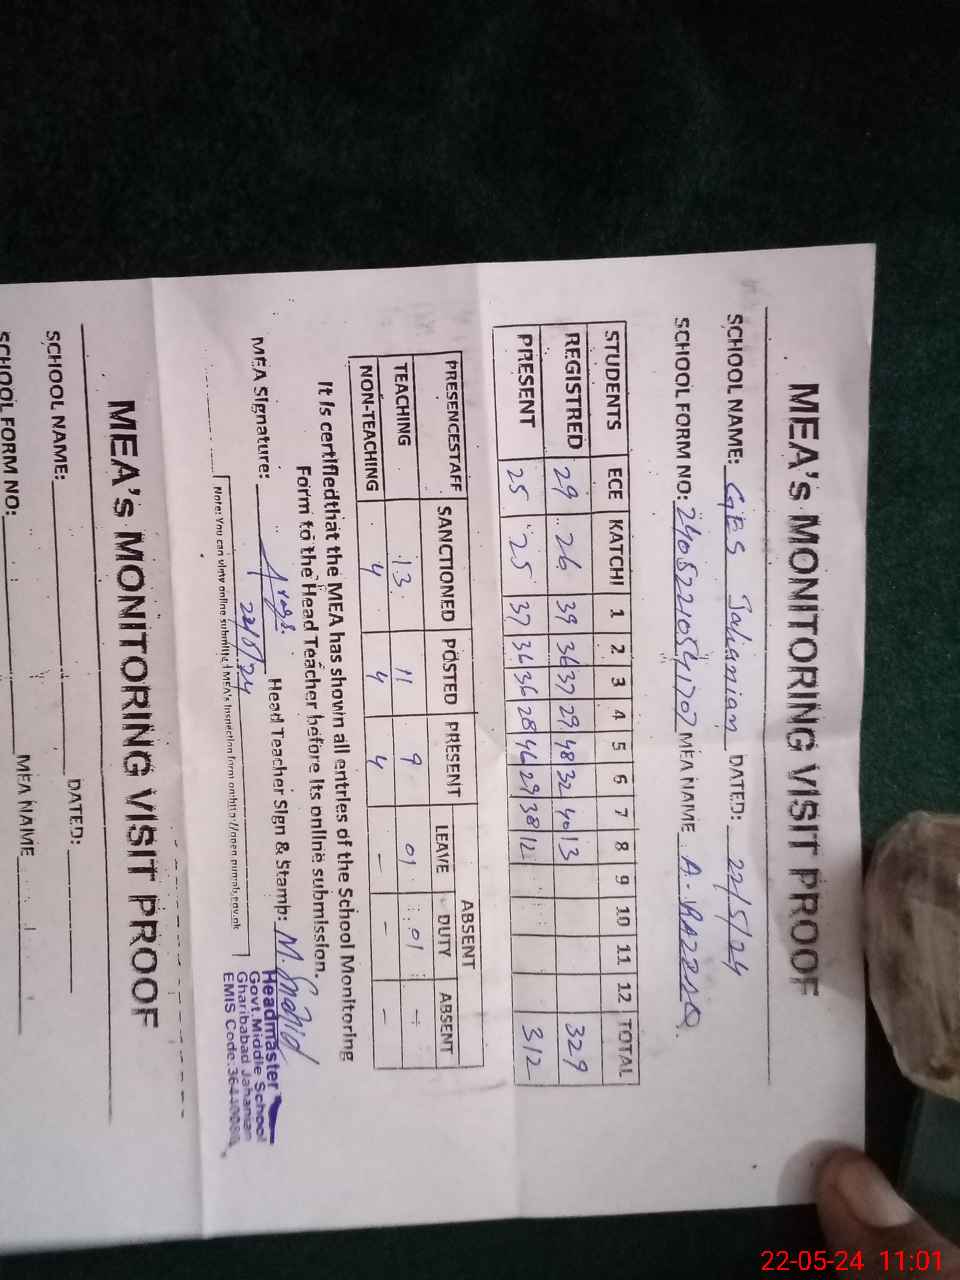 MEA's MONITORING VISIT PROOF
SCHOOL NAME: GES Jahanian DATED: 22/5/24
SCHOOL FORM NO: 24052210541707 MEA NAME A. RAZZAQ.
STUDENTS ECE KATCHI 1 2 3 4 5 6 7 8 9 10 11 12 TOTAL
REGISTRED 29 26 39 36 37 29 48 32 40 13 329
PRESENT 25 25 37 36 36 28 46 29 38 12 312
PRESENCESTAFF SANCTIONED POSTED PRESENT ABSENT
LEAVE DUTY ABSENT
TEACHING 13 11 9 01 01 -
NON-TEACHING 4 4 4 - - -
It is certifiedthat the MEA has shown all entries of the School Monitoring
Form to the Head Teacher before its online submission.
MEA Signature: Head Teacher Sign & Stamp: M. Shahid
22/5/24
Headmaster
Govt. Middle School
Gharibabad Jahanian
EMIS Code:
Note: You can view online submitted MEA's Inspection form on
MEA's MONITORING VISIT PROOF
SCHOOL NAME: DATED:
SCHOOL FORM NO: MEA NAME
22-05-24 11:01